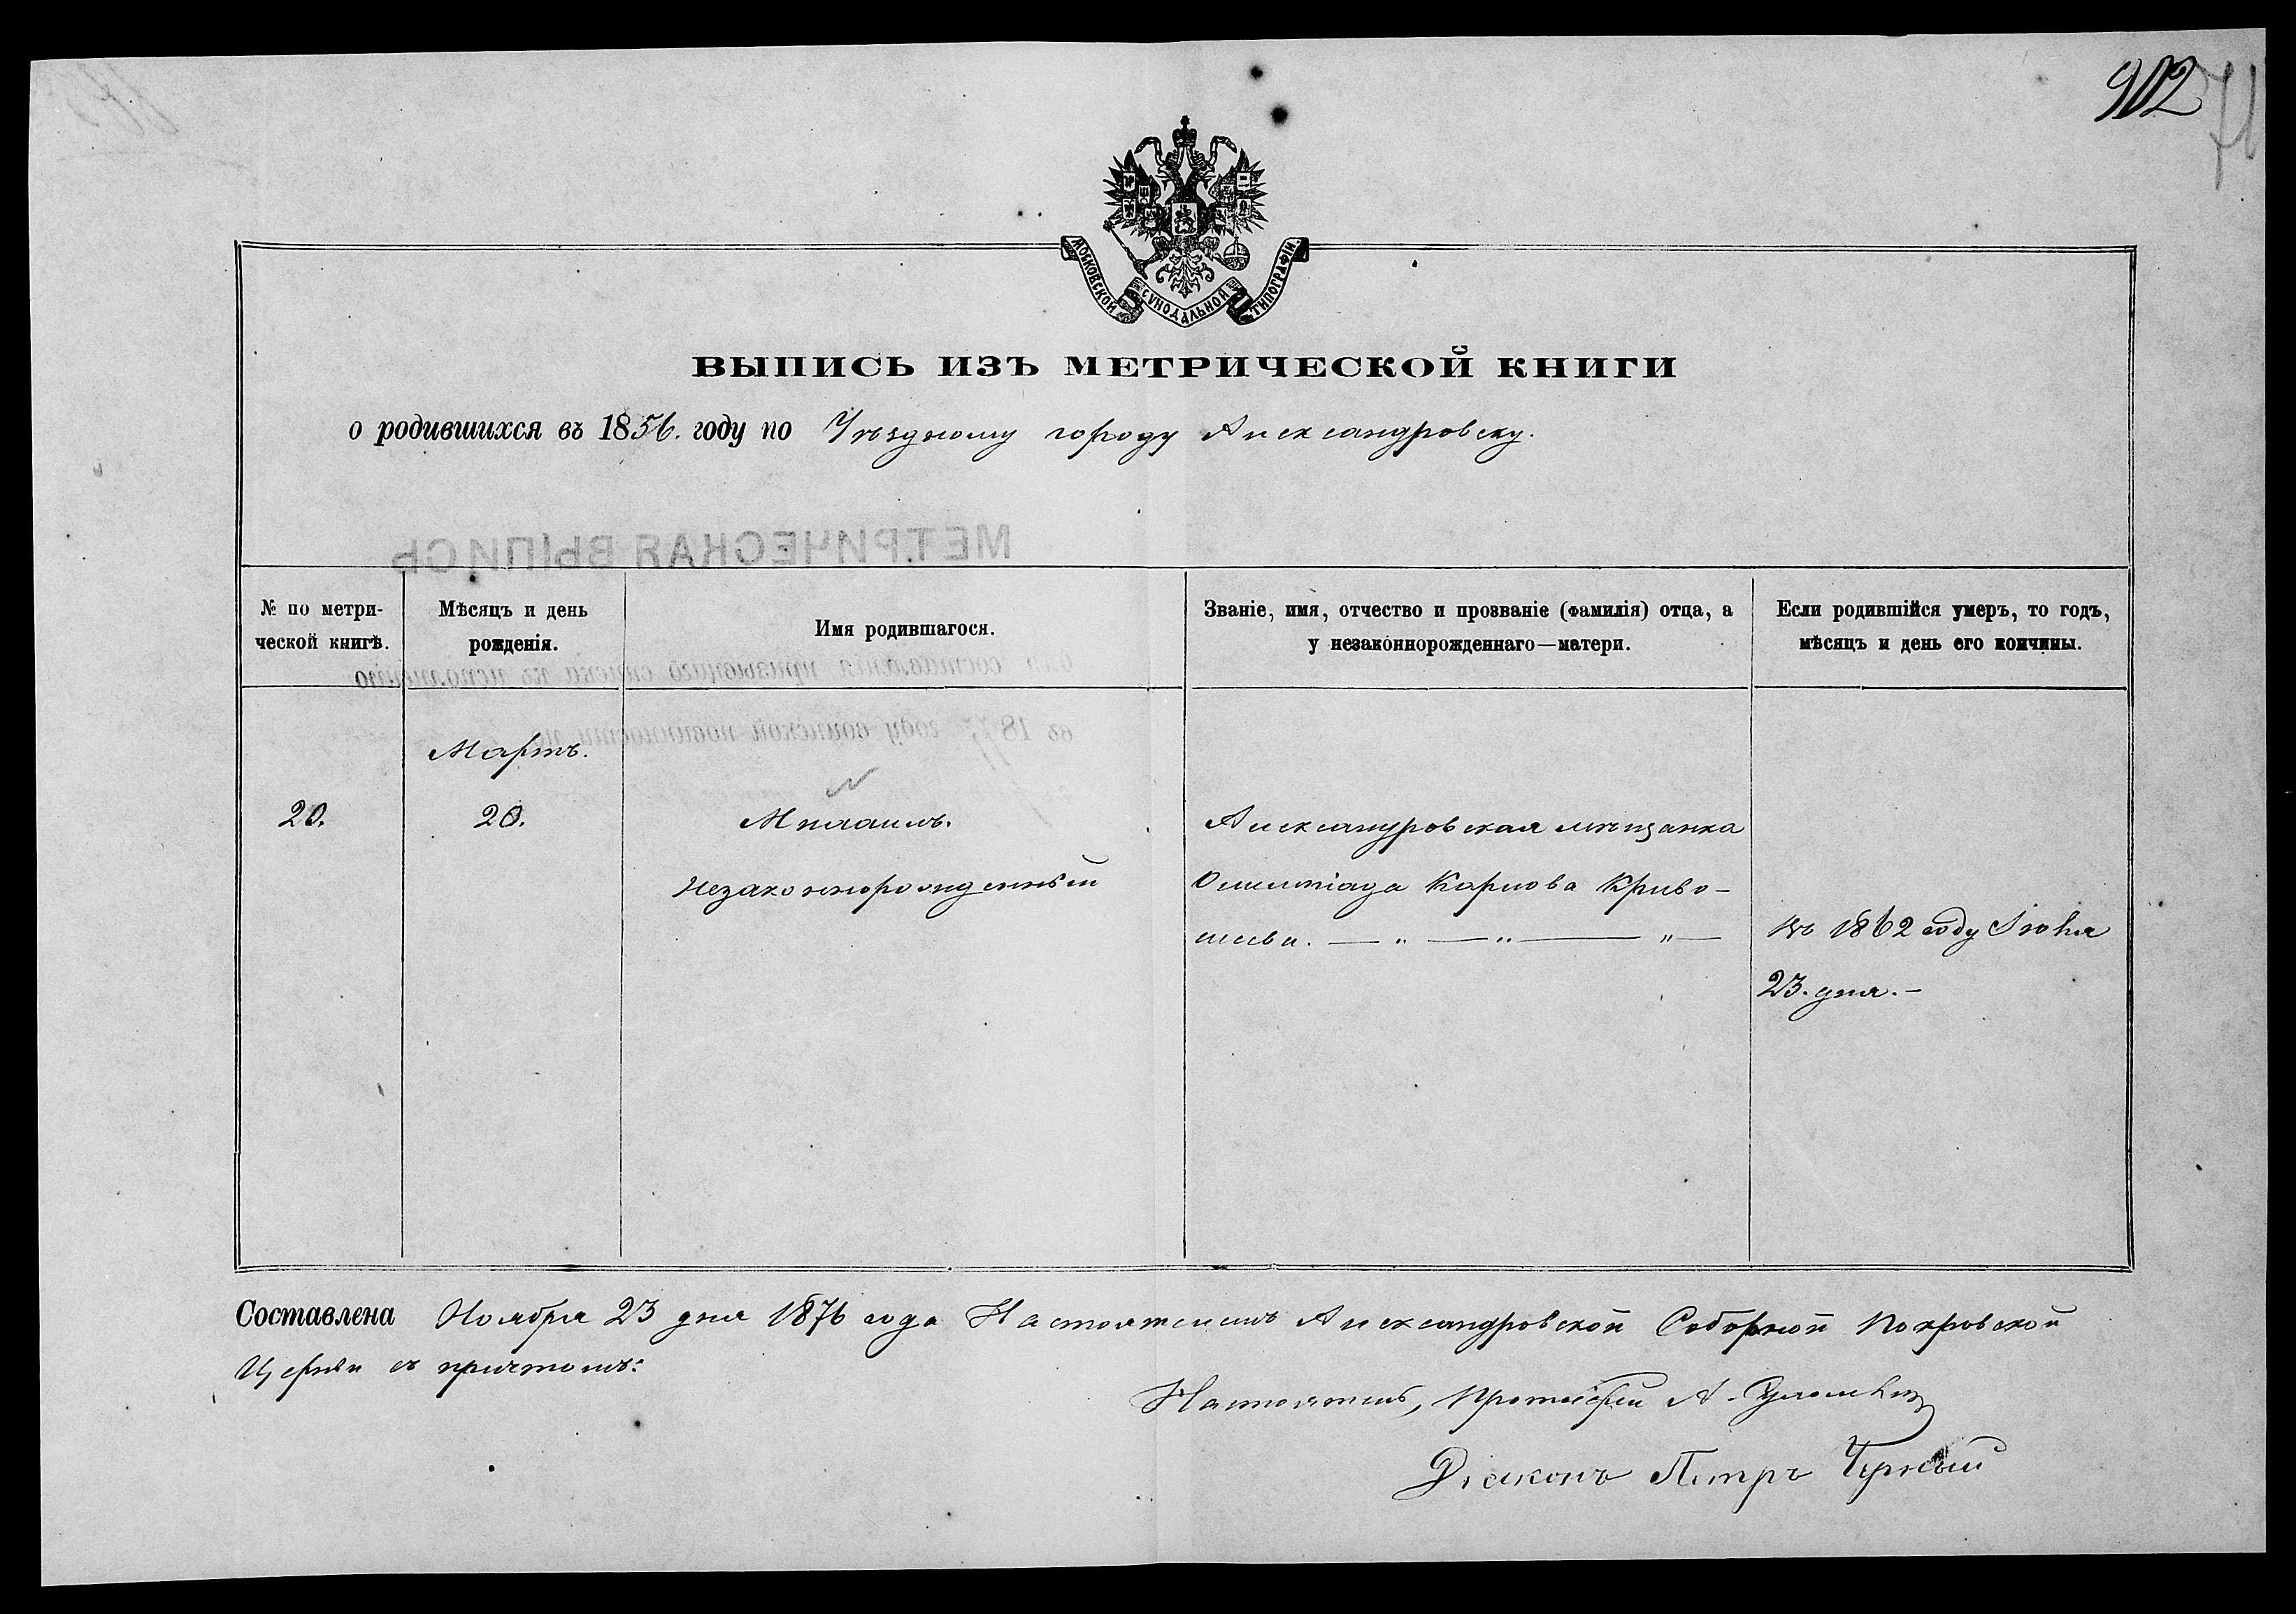 902
71
МОСКОВСКОЙ СѴНОДАЛЬНОЙ ТИПОГРАФІИ.
ВЫПИСЬ ИЗЪ МЕТРИЧЕСКОЙ КНИГИ
о родившихся въ 1856. году по Уѣздному городу Александровску.
МЕТРИЧЕСКАЯ ВЫПИСЬ
№ по метри-
ческой книгѣ.
Мѣсяцъ и день
рожденія.
Имя родившагося.
Званіе, имя, отчество и прозваніе (фамилія) отца, а
у незаконнорожденнаго—матери.
Если родившійся умеръ, то годъ,
мѣсяцъ и день его кончины.
составленія призывнаго списка къ исполненію
въ 1877 году воинской повинности
Мартъ.
20.
20.
Михаилъ.
Незаконнорожденный
Александровская мѣщанка
Олимпіада Карпова Криво-
шеева. — " — " — " —
Въ 1862 году Іюня
23. дня. –
Составлена Ноября 23 дня 1876 года Настоятелемъ Александровской Соборной Покровской
Церкви съ причтомъ:
Настоятель, Протоіерей А.
Діаконъ Петръ Чорный